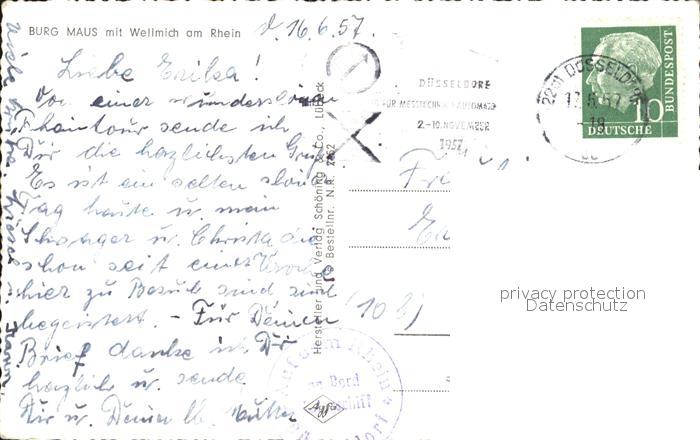 BURG MAUS mit Wellmich am Rhein
d. 16.6.57.
Liebe Erika!
Von einer wunderschönen
Rheintour sende ich
Dir die herzlichsten Grüße
Es ist ein selten schöner
Tag heute u. mein
Schwager u. Christa die
schon seit einer Woche
hier zu Besuch sind sind
begeistert. - Für Deinen
Brief danke ich Dir
herzlich u. sende
Dir u. Deiner lb. Mutter
viele Grüße.
Hersteller und Verlag Schöning & Co., Lübeck
Bestellnr. N.R. 2862
DÜSSELDORF
FÜR MESSTECHNIK AUTOMATIO
2.-10. NOVEMBER
1957
(22a) DÜSSELDORF
-18
DEUTSCHE
BUNDESPOST
10
Fr
(10
privacy protection
Datenschutz
auf dem Rhein
an Bord
Agfa